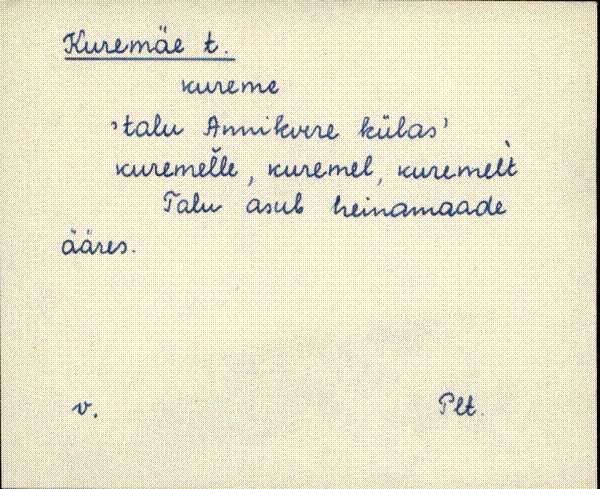 Kuremäe t.
kureme
'talu Annikvere külas'
kuremel̆le, kuremel, kuremel̀t
Talu asub heinamaade
ääres.
v. Plt.